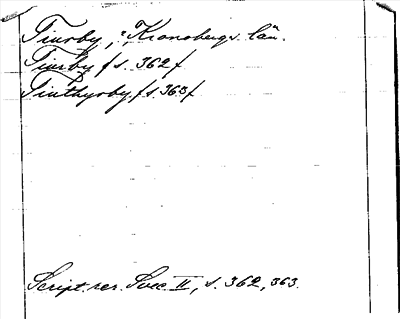 Tiurby, : Kronobergs län.
Tiurby / s. 362 /
Tiuthyrby / s. 363 /
Script. rer. Svec. II, s. 362, 363.